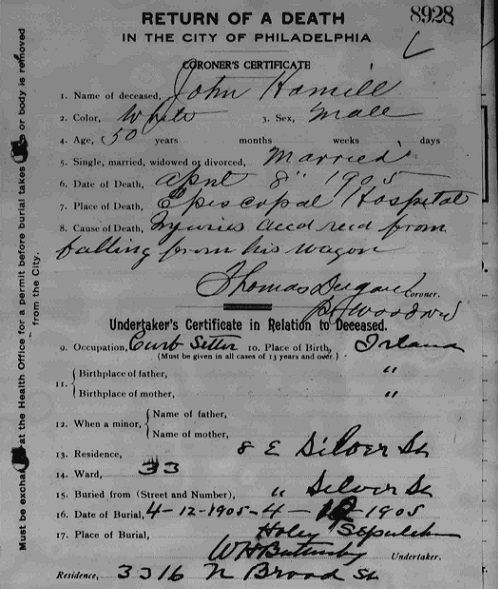 RETURN OF A DEATH 8928
IN THE CITY OF PHILADELPHIA
CORONER'S CERTIFICATE
1. Name of deceased, John Hamill
2. Color, White 3. Sex, Male
4. Age, 50 years months weeks days
5. Single, married, widowed or divorced, Married
6. Date of Death, April 8" 1905
7. Place of Death, Episcopal Hospital
8. Cause of Death, Injuries from
falling from his wagon
Thomas Dugan Coroner.
Woodward
Undertaker's Certificate in Relation to Deceased.
9. Occupation, Curb Setter 10. Place of Birth, Irland
(Must be given in all cases of 13 years and over.)
11. { Birthplace of father, "
Birthplace of mother, "
12. When a minor, { Name of father,
Name of mother,
13. Residence, 8 E Silver St
14. Ward, 33
15. Buried from (Street and Number), " Silver St
16. Date of Burial, 4-12-1905-4- 12-1905
17. Place of Burial, Holy Sepulchre
Undertaker.
Residence, 3316 N Broad St
Must be at the Health Office for a permit before burial takes or body is removed
from the City.